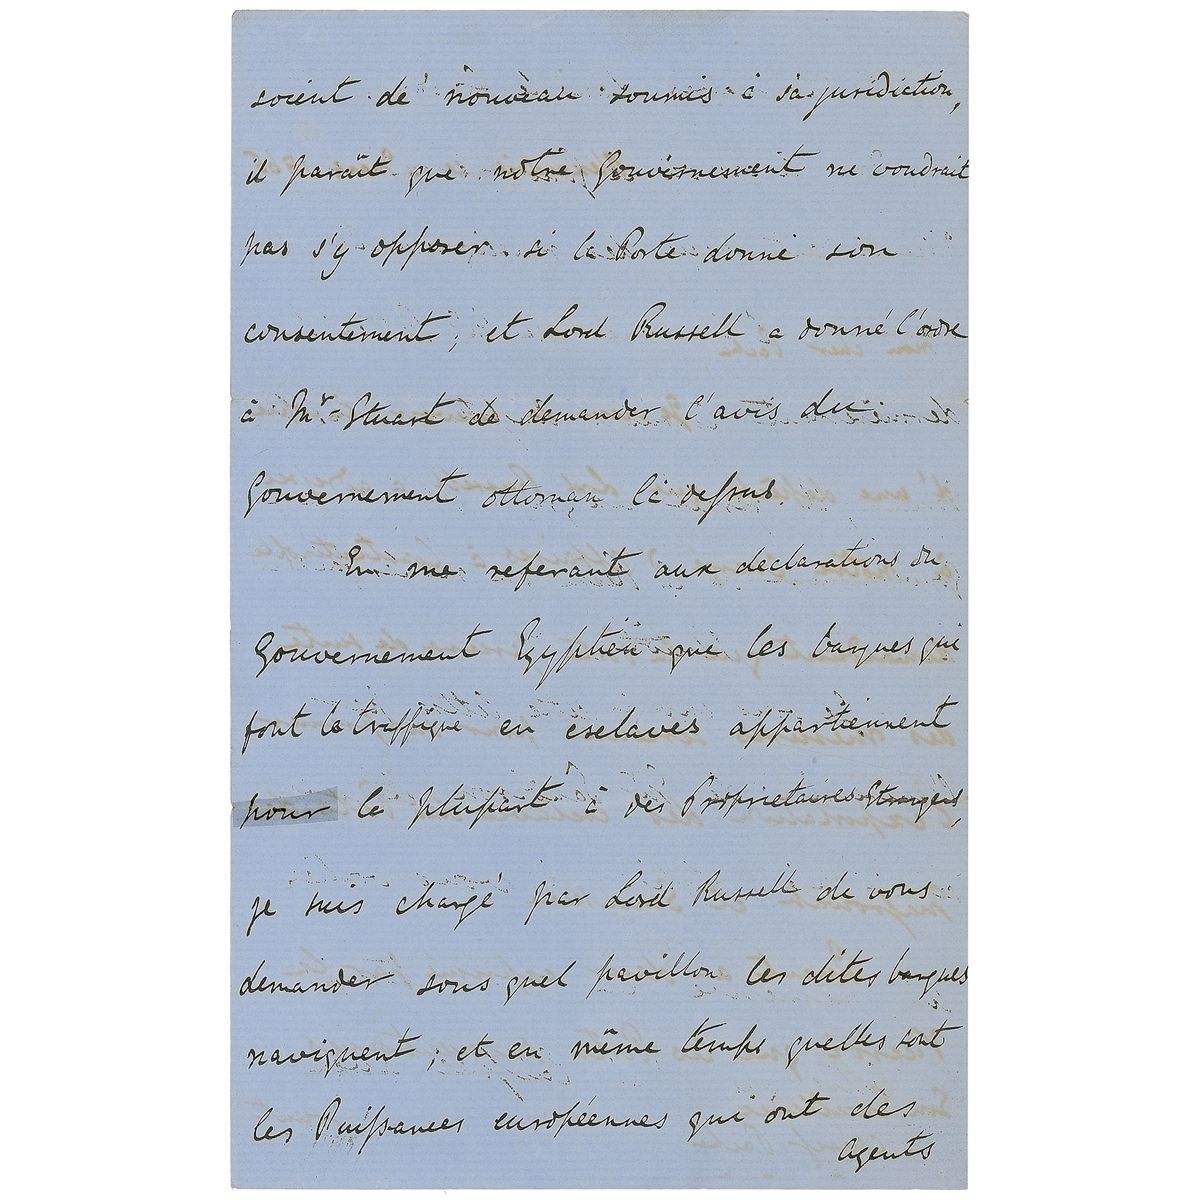 soient de nouveau soumis à sa juridiction,
il paraît que nôtre Gouvernement ne voudrait
pas s'y opposer si la Porte donne son
consentement; et Lord Russell a donné l'ordre
à Mr. Stuart de demander l'avis du
Gouvernement ottoman là dessus.
En me referant aux declarations du
Gouvernement Egyptien que les barques qui
font le traffique en esclaves appartiennent
pour la plupart à des Proprietaires Etrangers,
je suis chargé par Lord Russell de vous
demander sous quel pavillon les dites barques
naviguent; et en même temps quelles sont
les Puissances européennes qui ont des
agents